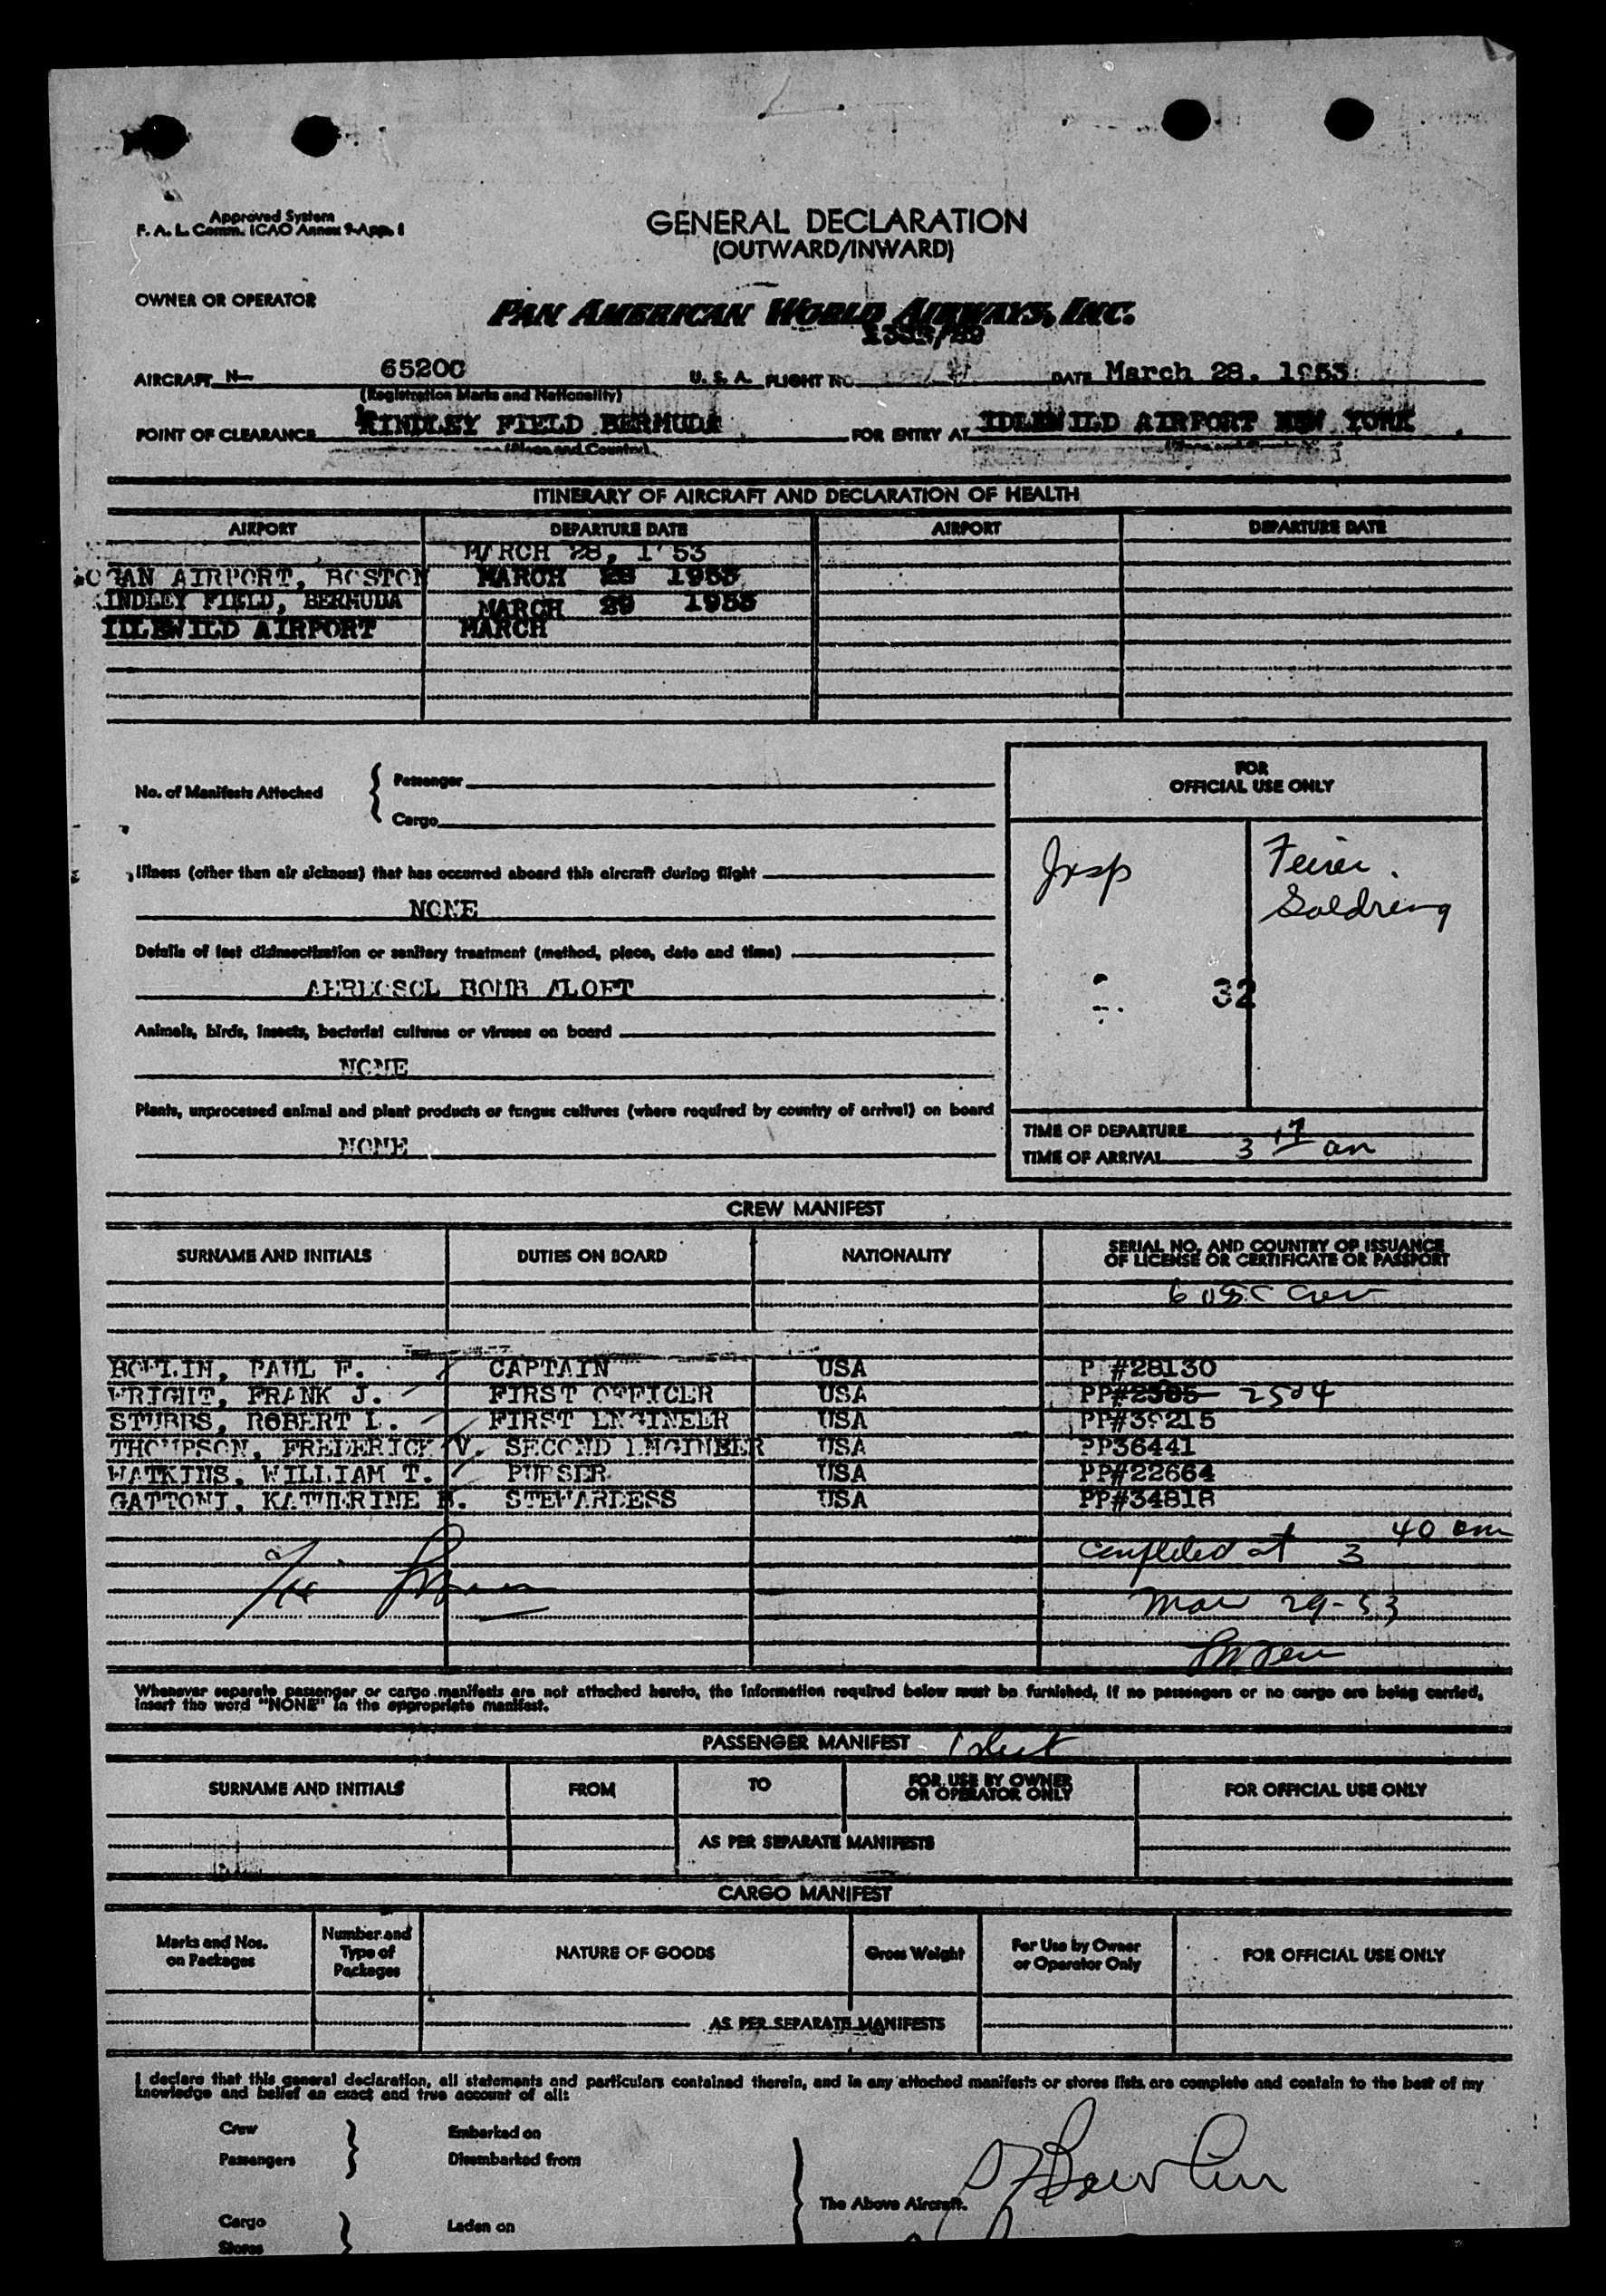 Approved System
F. A. L. Comm. ICAO Annex 9-App. 1
GENERAL DECLARATION
(OUTWARD/INWARD)
OWNER OR OPERATOR
PAN AMERICAN WORLD AIRWAYS, INC.
AIRCRAFT N- 6520C U. S. A. FLIGHT NO. DATE March 28, 1953
(Registration Marks and Nationality)
POINT OF CLEARANCE KINDLEY FIELD BERMUDA FOR ENTRY AT IDLEWILD AIRPORT NEW YORK
(Place and Country) (Place and Country)
ITINERARY OF AIRCRAFT AND DECLARATION OF HEALTH
AIRPORT DEPARTURE DATE AIRPORT DEPARTURE DATE
MARCH 28, 1 53
OGAN AIRPORT, BOSTON MARCH 28 1953
INDLEY FIELD, BERMUDA MARCH 29 1953
IDLEWILD AIRPORT MARCH
FOR
OFFICIAL USE ONLY
No. of Manifests Attached { Passenger
Cargo
Insp
Soldring
Illness (other than air sickness) that has occurred aboard this aircraft during flight
NONE
Details of last disinsectization or sanitary treatment (method, place, date and time)
AEROSOL BOMB ALOFT
32
Animals, birds, insects, bacterial cultures or viruses on board
NONE
Plants, unprocessed animal and plant products or fungus cultures (where required by country of arrival) on board
NONE
TIME OF DEPARTURE
TIME OF ARRIVAL 3 17 am
CREW MANIFEST
SURNAME AND INITIALS DUTIES ON BOARD NATIONALITY SERIAL NO. AND COUNTRY OF ISSUANCE
OF LICENSE OR CERTIFICATE OR PASSPORT
6 USC Crew
BOWLIN, PAUL F. CAPTAIN USA P #28130
WRIGHT, FRANK J. FIRST OFFICER USA PP#2505 2504
STUBBS, ROBERT L. FIRST ENGINEER USA PP#39215
THOMPSON, FREDERICK V. SECOND ENGINEER USA PP36441
WATKINS, WILLIAM T. PURSER USA PP#22664
GATTONI, KATHERINE M. STEWARDESS USA PP#34818
completed at 3 40 am
Mar 29-53
Whenever separate passenger or cargo manifests are not attached hereto, the information required below must be furnished, if no passengers or no cargo are being carried,
insert the word "NONE" in the appropriate manifest.
PASSENGER MANIFEST 1 sheet
SURNAME AND INITIALS FROM TO FOR USE BY OWNER
OR OPERATOR ONLY FOR OFFICIAL USE ONLY
AS PER SEPARATE MANIFESTS
CARGO MANIFEST
Marks and Nos.
on Packages Number and
Type of
Packages NATURE OF GOODS Gross Weight For Use by Owner
or Operator Only FOR OFFICIAL USE ONLY
AS PER SEPARATE MANIFESTS
I declare that this general declaration, all statements and particulars contained therein, and in any attached manifests or stores lists are complete and contain to the best of my
knowledge and belief an exact and true account of all:
Crew Embarked on
Passengers Disembarked from
The Above Aircraft. P F Bowlin
Cargo Laden on
Stores